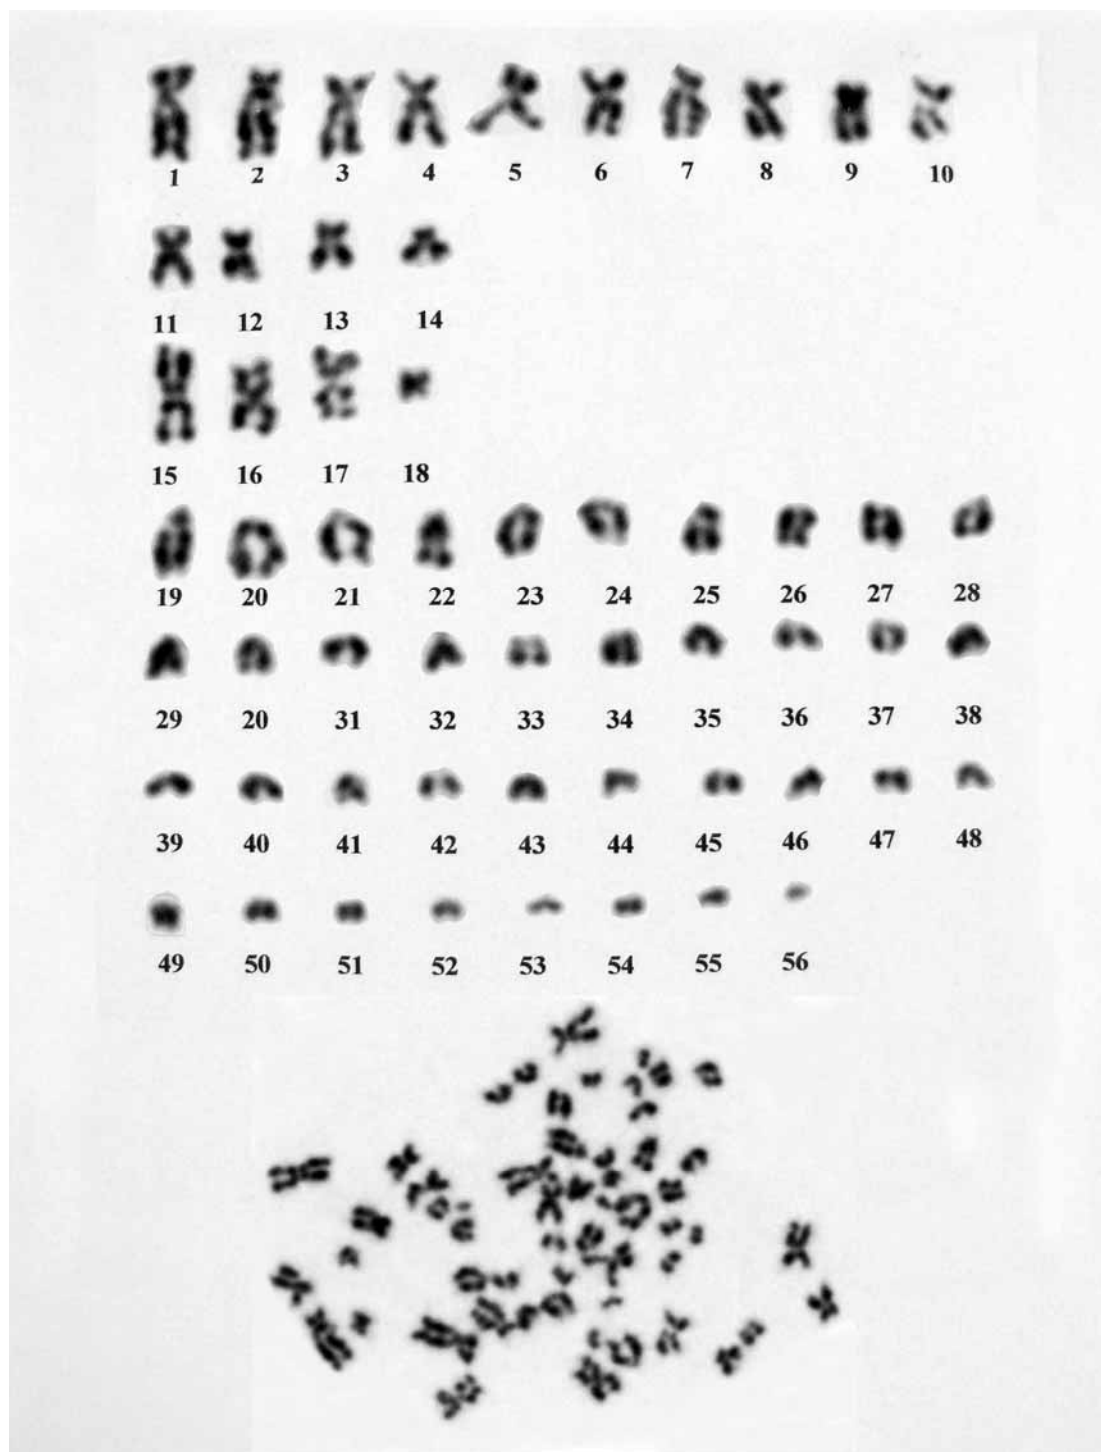 1 2 3 4 5 6 7 8 9 10
11 12 13 14
15 16 17 18
19 20 21 22 23 24 25 26 27 28
29 20 31 32 33 34 35 36 37 38
39 40 41 42 43 44 45 46 47 48
49 50 51 52 53 54 55 56